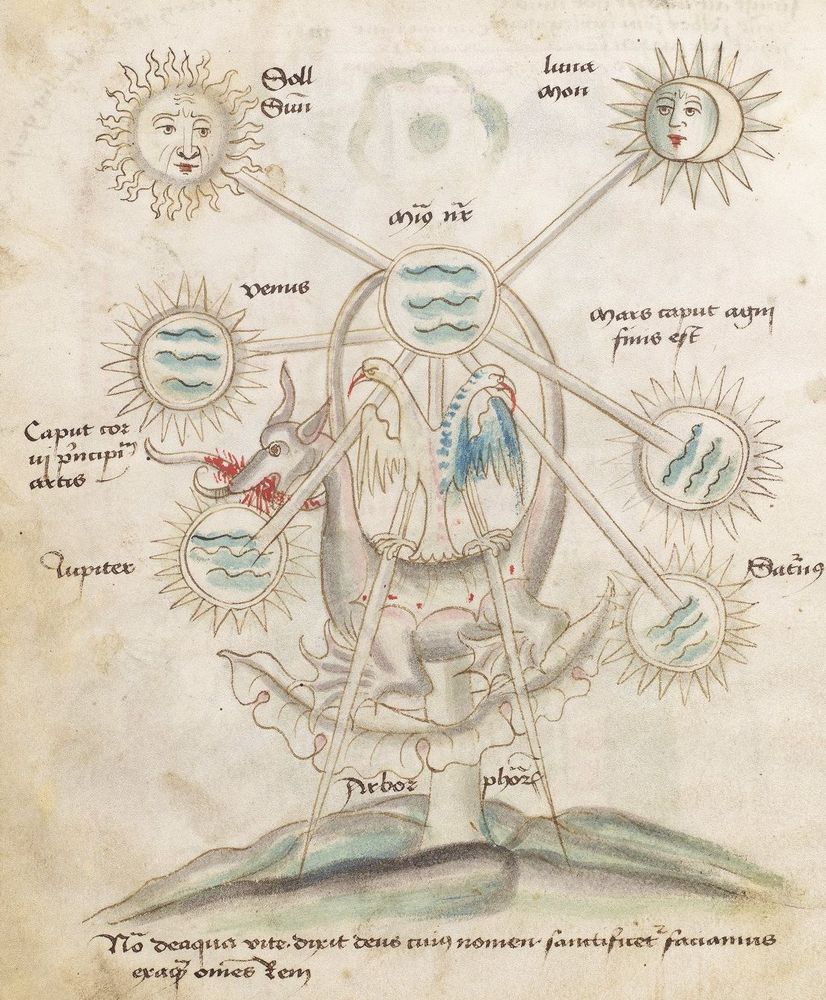 Soll
Sun̄
luna
Mon
M̃io nr̃
venus
Mars caput agni
finis est̃
Caput cor
uj p̃ncipiũ
artis
Jupiter
Saturñ9
Arbor phõr
No᷃ de aqua vite dixit deus cui9 nomen sanctificet᷑ faciamus
ex aq̃ omẽs Rem